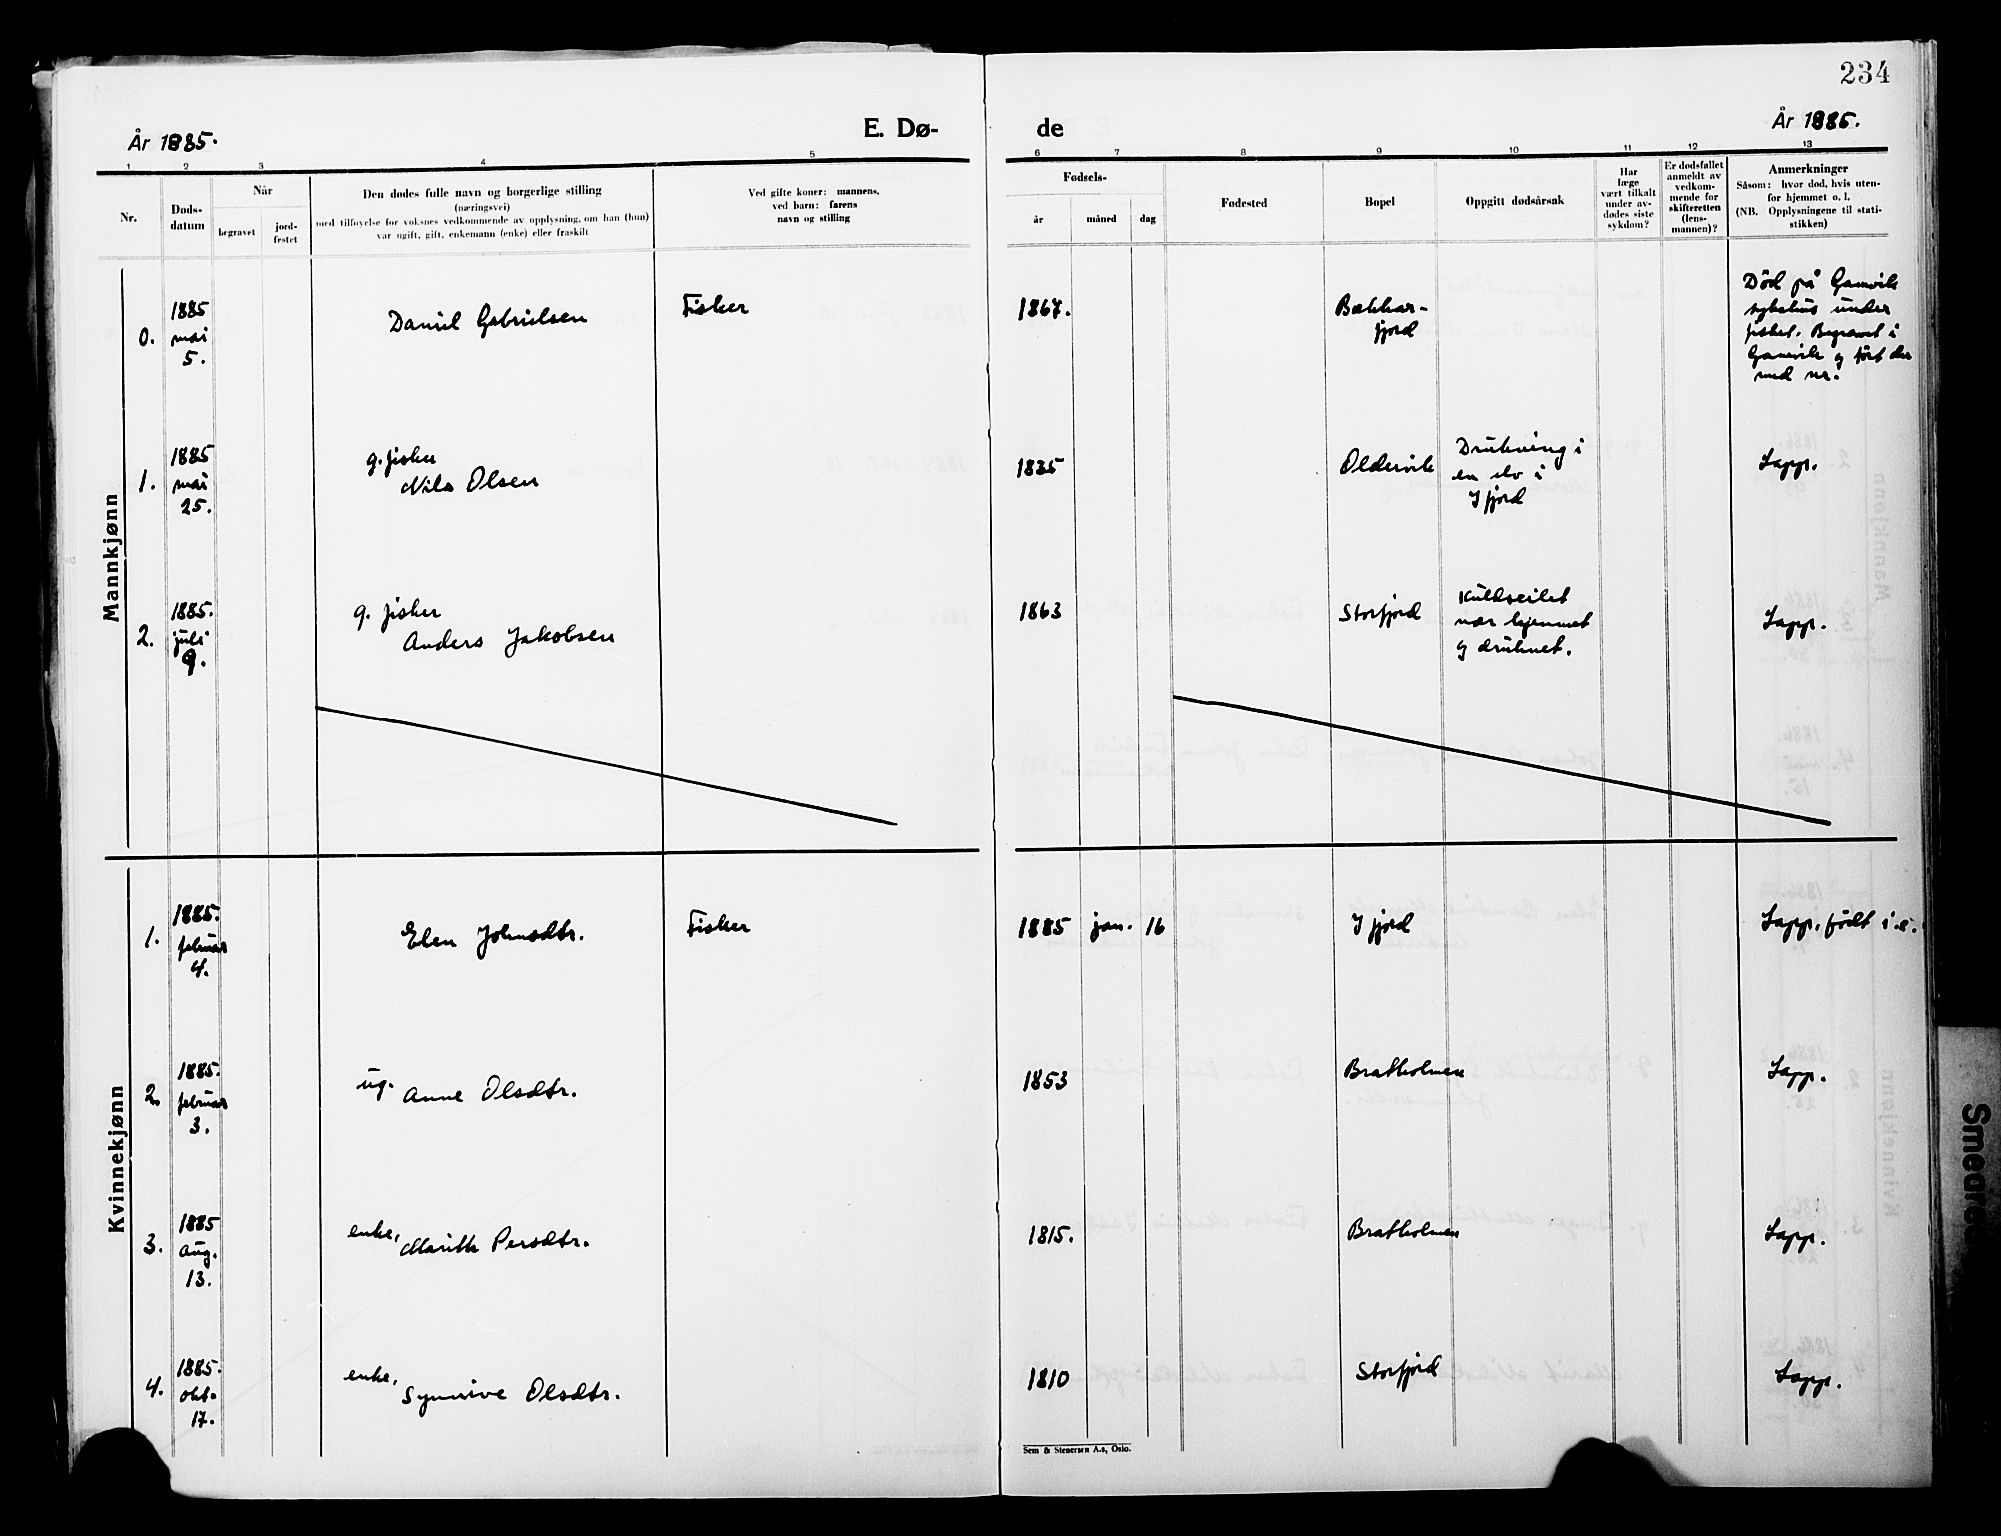 234
År 1885.
E. Dø-
de
År 1885.
1 2 3 4 5 6 7 8 9 10 11 12 13
Nr.
Døds-
datum
Når
begravet
jord-
festet
Den dødes fulle navn og borgerlige stilling
(næringsvei)
med tilføyelse for voksnes vedkommende av opplysning, om han (hun)
var ugift, gift, enkemann (enke) eller fraskilt
Ved gifte koner: mannens,
ved barn: farens
navn og stilling
Fødsels-
år måned dag
Fødested
Bopel
Oppgitt dødsårsak
Har
læge
vært tilkalt
under av-
dødes siste
sykdom?
Er dødsfallet
anmeldt av
vedkom-
mende for
skifteretten
(lens-
mannen)?
Anmerkninger
Såsom: hvor død, hvis uten-
for hjemmet o. l.
(NB. Opplysningene til stati-
stikken)
Mannkjønn
0.
1885
mai
5.
Daniel Gabrielsen
Fisker
1867.
Bekkar-
fjord
Död på Gamvik
sykehus under
fisket. Begravet i
Gamvik og fört der
med nr.
1.
1885
mai
25.
g. fisker
Nils Olsen
1835
Oldervik
Drukning i
en elv i
Ifjord
Lapp.
2.
1885.
juli
9.
g. fisker
Anders Jakobsen
1863
Storfjord
Kuldseilet
nær hjemmet
og druknet.
Lapp.
Kvinnekjønn
1.
1885.
februar
4.
Elen Johnsdtr.
Fisker
1885 jan. 16
Ifjord
Lapp. födt i.e.
2.
1885.
februar
3.
ug.
Anne Olsdtr.
1853
Bratholmen
Lapp.
3.
1885
aug.
13.
enke,
Marith Persdtr.
1815.
Bratholmen
Lapp.
4.
1885.
okt.
17.
enke,
Synnive Olsdtr.
1810
Storfjord
Lapp.
Sem & Stenersen A.s, Oslo.